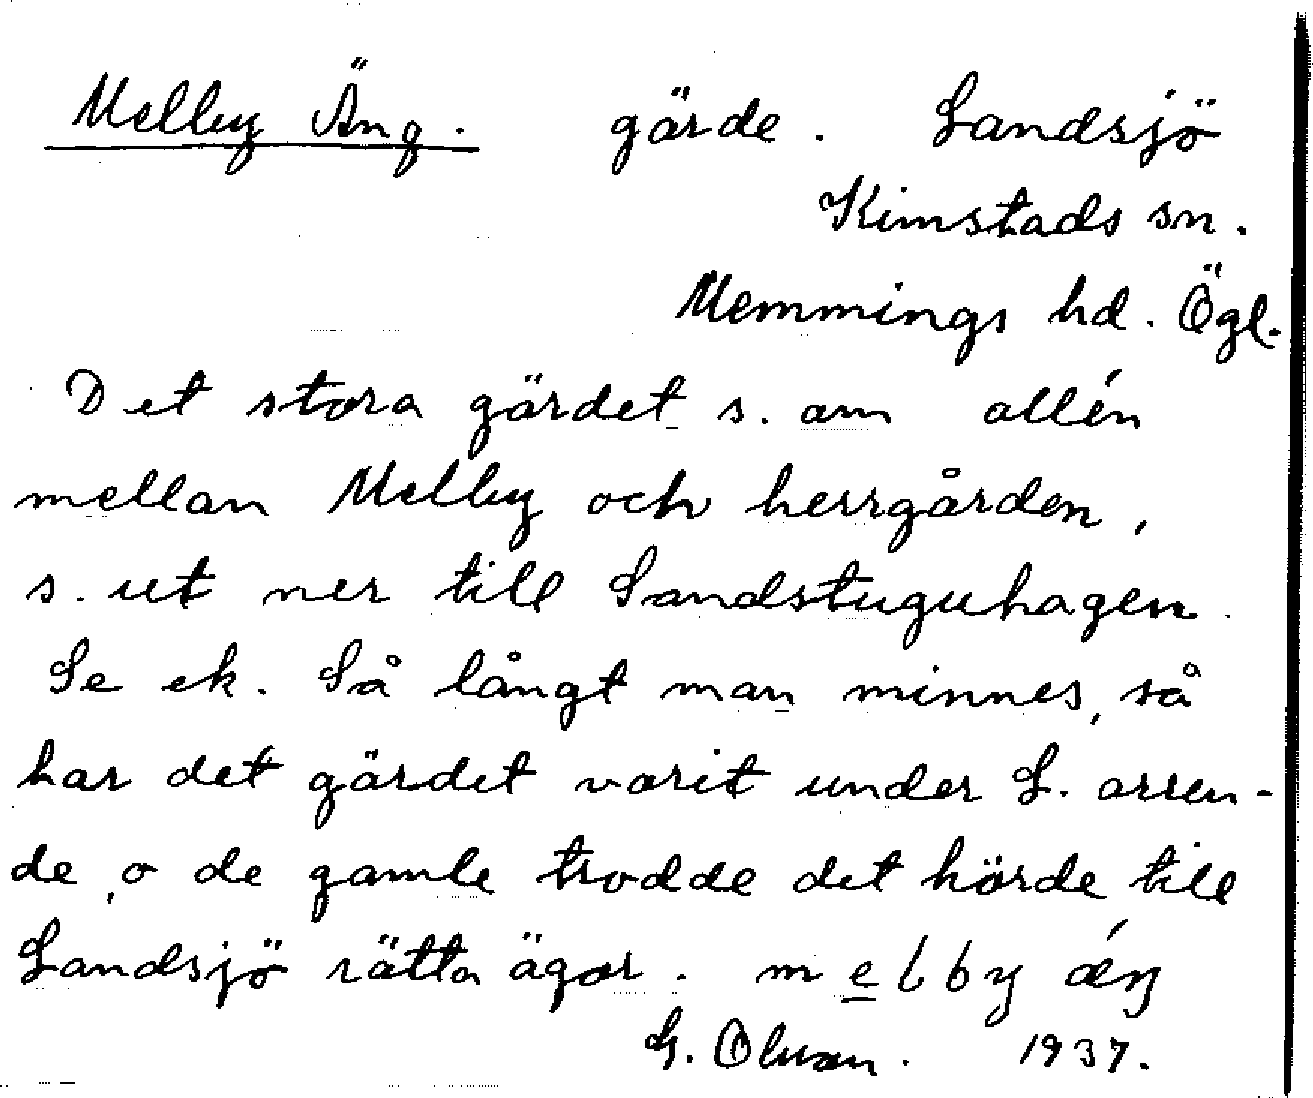 Melby Äng. gärde. Landsjö
Kimstads sn.
Memmings hd. Ögl.
Det stora gärdet s. om allén
mellan Melby och herrgården,
s. ut ner till Sandstuguhagen.
Se ek. Så långt man minnes, så
har det gärdet varit under L. arren-
de, o de gamle trodde det hörde till
Landsjö rätta ägor. melby áŋ
G. Olsson. 1937.